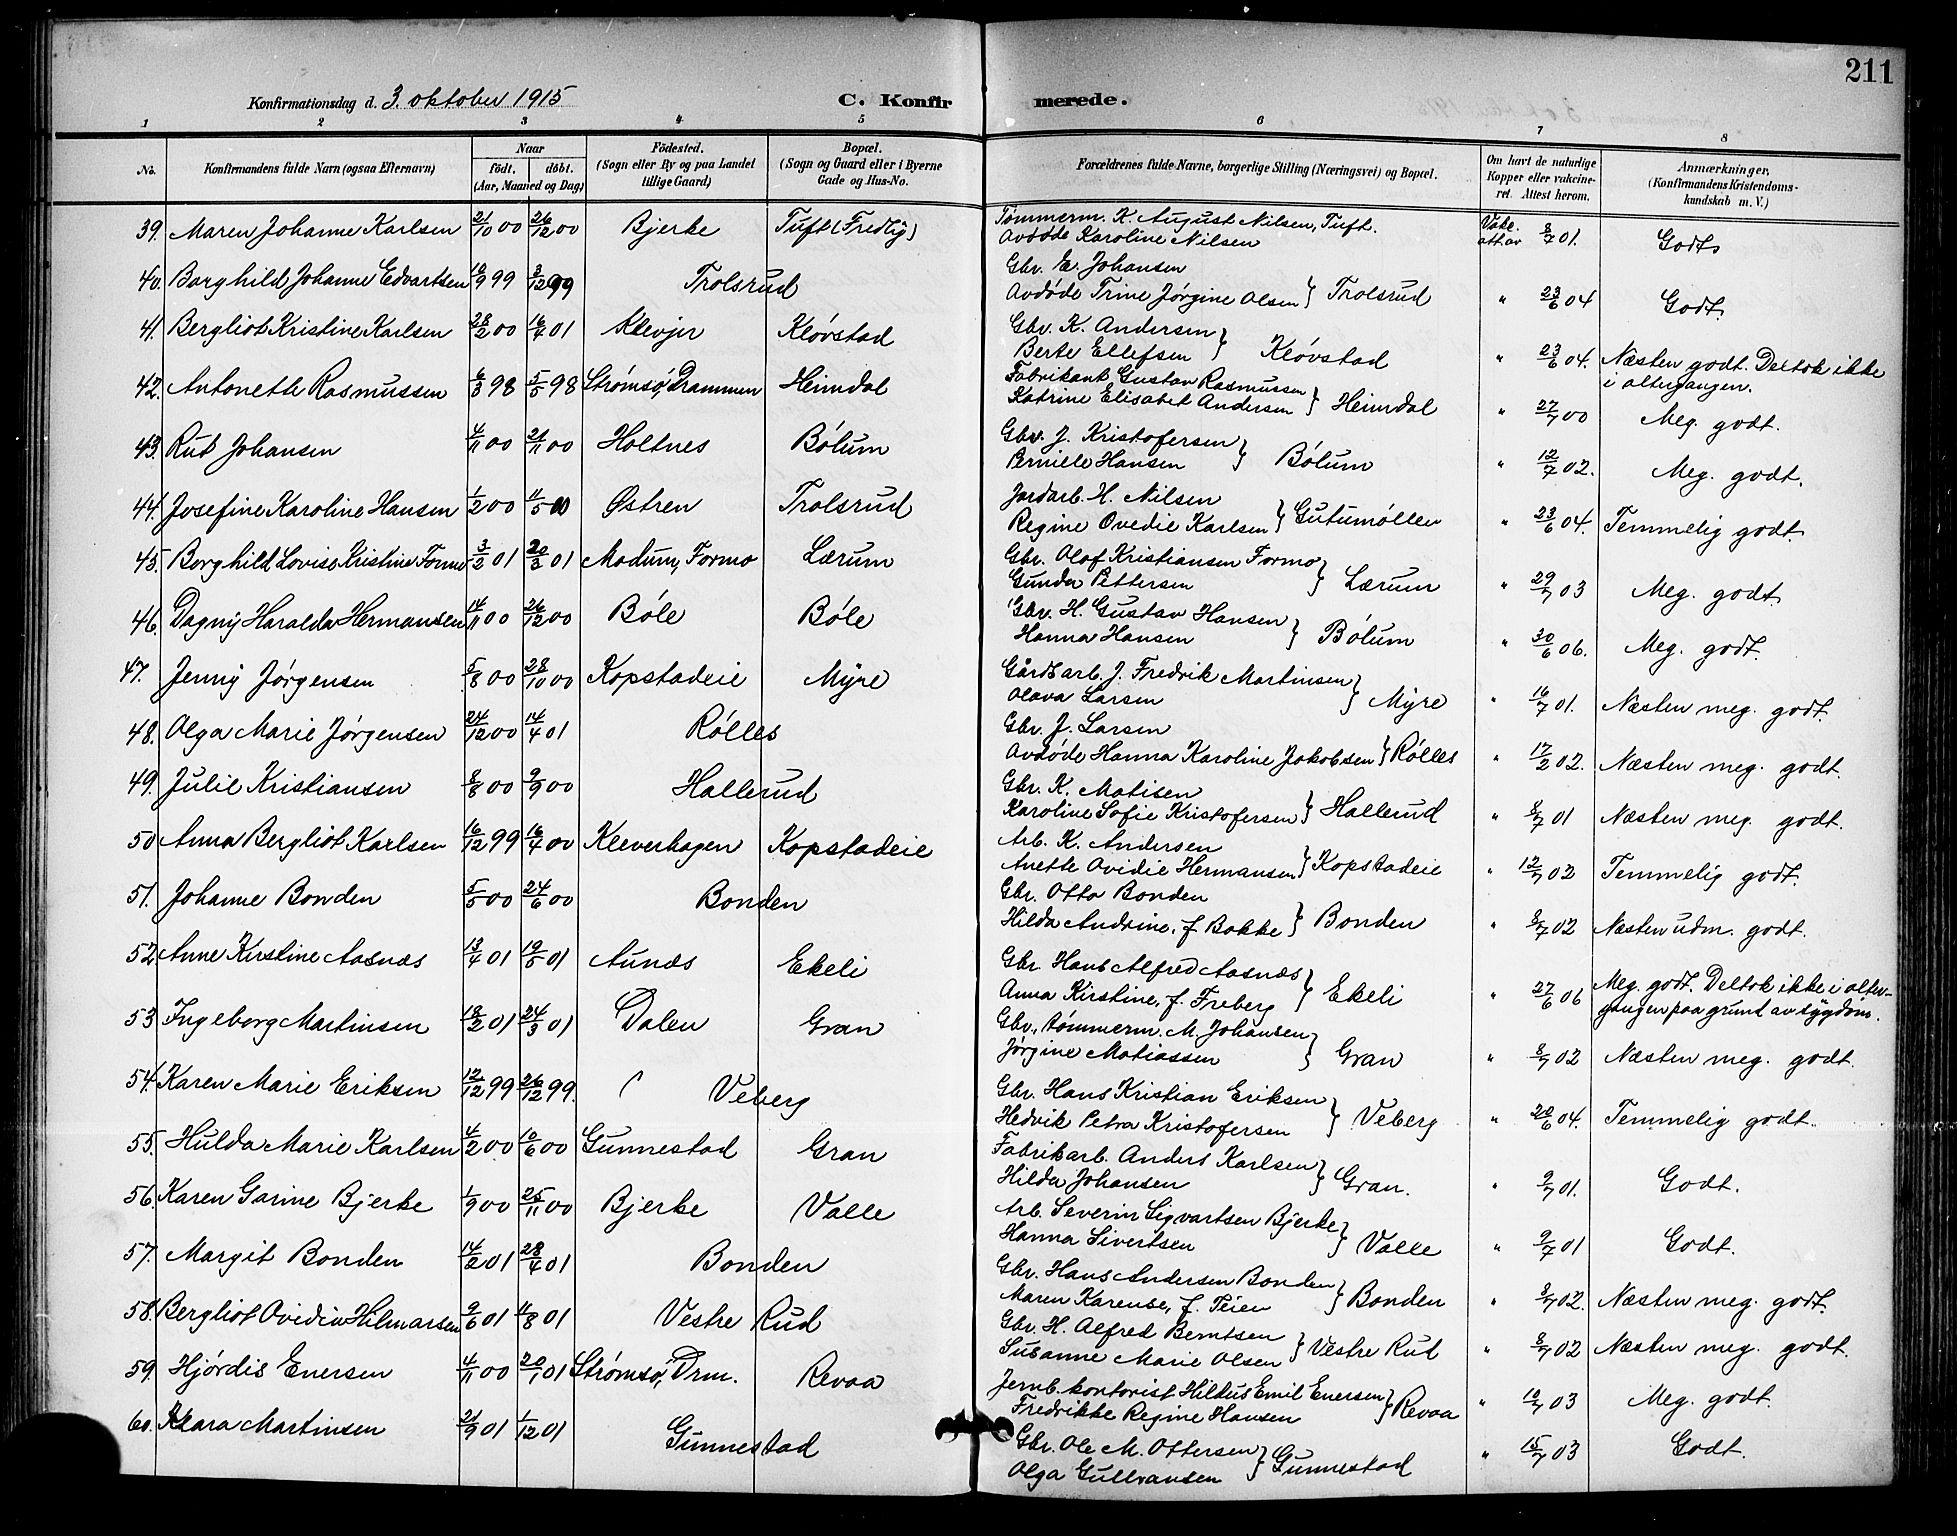 211
Konfirmationsdag d. 3. oktober 1915
C. Konfirmerede.
1 2 3 4 5 6 7 8
No.
Konfirmandens fulde Navn (ogsaa Efternavn)
Naar
födt. döbt.
(Aar, Maaned og Dag)
Födested.
(Sogn eller By og paa Landet
tillige Gaard)
Bopæl.
(Sogn og Gaard eller i Byerne
Gade og Hus-No.
Forældrenes fulde Navne, borgerlige Stilling (Næringsvei) og Bopæl.
Om havt de naturlige
Kopper eller vakcine-
ret. Attest herom.
Anmærkninger,
(Konfirmandens Kristendoms-
kundskab m. V.)
39. Maren Johanne Karlsen 21/10 00 26/12 00 Bjerke Tuft (Fredlig) Tømmerm. K. August Nilsen, Tuft. Vakc.
Avdøde Karoline Nilsen att av 8/7 01. Godt
40. Borghild Johanne Edvartsen 10/9 99 3/12 99 Trolsrud Gbr. E. Johansen
Avdøde Trine Jørgine Olsen } Trolsrud " 23/6 04 Godt.
41. Bergliot Kristine Karlsen 28/2 00 16/4 01 Klevjer Kløvstad Gbr. K. Andersen
Berte Ellefsen } Kløvstad " 23/6 04. Næsten godt. Deltok ikke
i altergangen.
42. Antonette Rasmussen 6/3 98 5/5 98 Strømsø, Drammen Heimdal Fabrikant Gustav Rasmussen
Katrine Elisabet Andersen } Heimdal " 27/7 00 Meg. godt.
43. Rut Johansen 4/11 00 21/11 00 Holtnes Bølum Gbr. J. Kristofersen
Pernille Hansen } Bølum " 12/7 02. Meg. godt.
44. Josefine Karoline Hansen 1/2 00 11/5 00 Østren Trolsrud Jordarb. H. Nilsen
Regine Ovedie Karlsen } Gutumøllen " 23/6 04. Temmelig godt
45. Borghild Lovise Kristine Formo 3/2 01 20/3 01 Modum, Formo Lærum Gbr. Olaf Kristiansen Formo
Gunda Pettersen } Lærum " 29/7 03 Meg. godt
46. Dagny Haralda Hermansen 14/11 00 26/12 00 Bøle Bøle Gbr. H. Gustav Hansen
Hanna Hansen } Bølum " 30/6 06. Meg. godt.
47. Jenny Jørgensen 5/8 00 28/10 00 Kopstadeie Myre Gårdsarb. J. Fredrik Martinsen
Olava Larsen } Myre " 16/7 01. Næsten meg. godt.
48. Olga Marie Jørgensen 24/12 00 14/4 01 Rølles Gbr. J. Larsen
Avdøde Hanna Karoline Jakobsen } Rølles " 17/2 02. Næsten meg. godt.
49. Julie Kristiansen 8/8 00 9/9 00 Hallerud Gbr. K. Matisen
Karoline Sofie Kristofersen } Hallerud " 8/7 01 Næsten meg. godt.
50 Anna Bergliot Karlsen 16/12 99 16/4 00 Kleverhagen Kopstadeie Arb. K. Andersen
Anette Ovidie Hermansen } Kopstadeie " 12/7 02 Temmelig godt.
51. Johanne Bonden 5/5 00 24/6 00 Bonden Gbr. Otto Bonden
Hilda Andrine, f. Bakke } Bonden " 8/7 02 Næsten udm. godt.
52 Anne Kirstine Aasnæs 13/4 01 19/5 01 Aunæs Ekeli Gbr. Hans Alfred Aasnæs
Anna Kirstine, f. Freberg } Ekeli " 27/6 06 Meg. godt. Deltok ikke i alter-
gangen paa grunt av sygdom.
53 Ingeborg Martinsen 18/2 01 24/3 01 Dalen Gran Gbr., tømmerm. M. Johansen
Jørgine Matiassen } Gran " 8/7 02 Næsten meg. godt.
54. Karen Marie Eriksen 12/12 99 26/12 99. Veberg Gbr. Hans Kristian Eriksen
Hedvik Petra Kristofersen } Veberg " 20/6 04. Temmelig godt.
55. Hulda Marie Karlsen 4/2 00 10/6 00 Gunnestad Gran Fabrikarb. Anders Karlsen
Hilda Johansen } Gran. " 9/7 01. Godt.
56. Karen Garine Bjerke 1/9 00 25/11 00 Bjerke Valle Arb. Severin Sigvartsen Bjerke
Hanna Sivertsen } Valle " 9/7 01 Godt.
57. Margit Bonden 14/2 01 28/4 01 Bonden Gbr. Hans Andersen Bonden
Maren Karense, f. Teien } Bonden " 8/7 02. Næsten meg. godt.
58. Bergliot Ovidia Hilmarsen 9/6 01 4/8 01 Vestre Rud Gbr. H. Alfred Berntsen
Susanne Marie Olsen } Vestre Rud " 8/7 02 Næsten meg. godt.
59. Hjørdis Enersen 4/11 00 20/1 01 Strømsø, Drm. Revaa Jernb. kontorist Hildus Emil Enersen
Fredrikke Regine Hansen } Revaa " 10/7 03 Meg. godt.
60. Klara Martinsen 21/9 01 1/12 01 Gunnestad Gbr. Ole M. Ottersen
Olga Gullvansen } Gunnestad " 15/7 03 Godt.